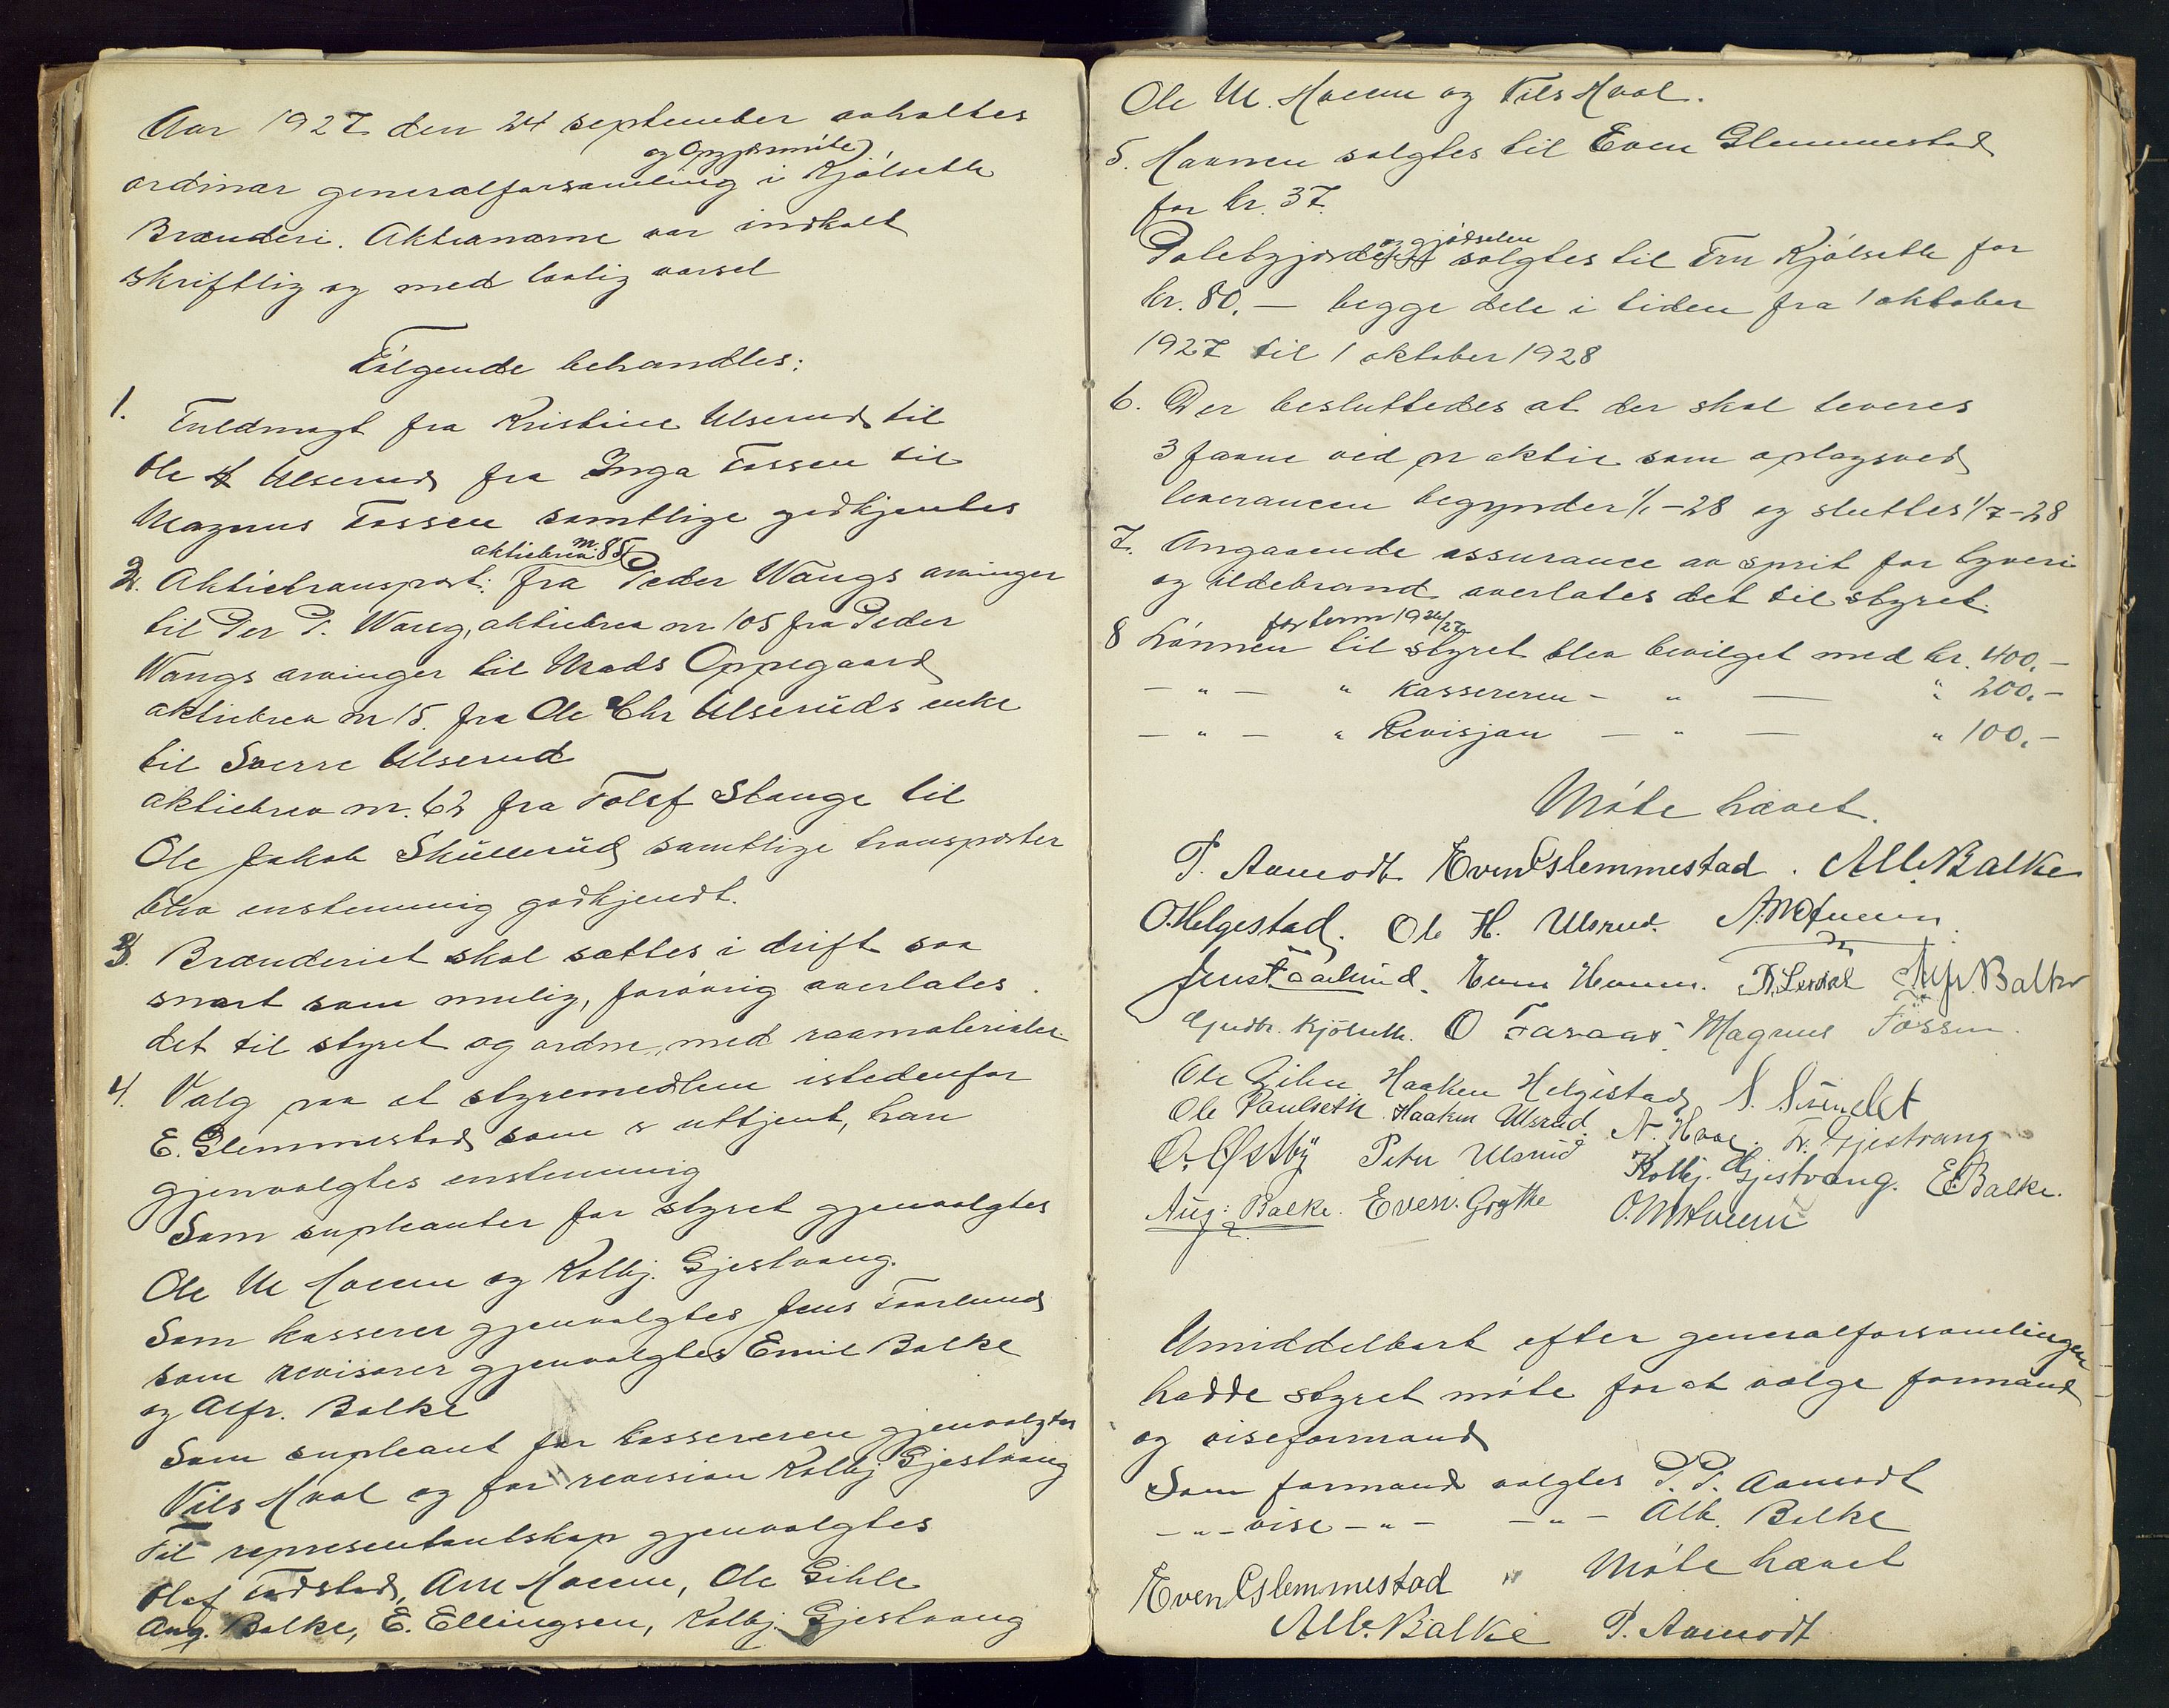 Aar 1927 den 24 september avholtes
og Opgjørsmøte
ordinær generalforsamling i Kjølseth
Brænderi. Aktienærne var indkalt
skriftlig og med lovlig varsel
Følgende behandles:
1. Fuldmagt fra Kristine Ulserud til
Ole H Ulserud fra Inga Fossen til
Magnus Fossen samtlige godkjentes
aktiebrev nr. 85
2. Aktietransport: fra Peder Wangs arvinger
til Per P. Wang, aktiebrev nr 105 fra Peder
Wangs arvinger til Mads Oppegaard
aktiebrev nr 15. fra Ole Chr Ulseruds enke
til Sverre Ulserud
aktiebrev nr. 62 fra Tolef Stange til
Ole Jakob Skullerud samtlige transporter
blev enstemmig godkjendt.
3. Brænderiet skal sættes i drift saa
snart som mulig, forøvrig averlates
det til styret og ordne med raamaterialer.
4. Valg paa et styremedlem istedenfor
E. Glemmestad som er uttjent, han
gjenvalgtes enstemmig
Som supleanter for styret gjenvalgtes
Ole M Hveem og Kolbj. Gjestvang.
Som kasserer gjenvalgtes Jens Faarlund
som revisorer gjenvalgtes Emil Balke
og Alfr. Balke
Som supleant for kassereren gjenvalgtes
Nils Hval og for revision Kolbj Gjestvang
Til representantskap gjenvalgtes
Olaf Fodstad, Arn Hveem, Ole Gihle
Aug. Balke, E. Ellingsen, Kolbj. Gjestvang
Ole M. Hveem og Nils Hval.
5. Havnen solgtes til Even Glemmestad
for kr. 37.
og gjødselen
Potetgjorden solgtes til Fru Kjølseth for
kr. 80.- begge dele i tiden fra 1 oktober
1927 til 1 oktober 1928
6. Der besluttedes at der skal leveres
3 favne ved pr aktie som oplagsved
leverancen begynder 1/1-28 og sluttes 1/7-28
7. Angaaende assurance av sprit for tyveri
og ildebrand averlates det til styret.
for term 1926/27
8 Lønnen til styret blev bevilget med kr. 400.-
- " - " Kassereren - " - " 200.-
- " - " Revisjon - " - " 100.-
Møte hævet.
P. Aamodt Even Glemmestad. Alb. Balke
O. Helgestad. Ole H. Ulsrud. A. M Hveem
Jens Faarlund. Alfr. Balke
Gudbr. Kjølseth. O Faraas. Magnus Fossen.
Ole Gihle Haaken Helgestad
Ole Paulseth Haaken Ulsrud. N. Hval. Fr. Gjestvang
O. Østby Peter Ulsrud Kolbj. Gjestvang. E. Balke.
Aug: Balke. Even. Grythe O. M Hveem
Umiddelbart efter generalforsamlingen
hadde styret møte for at vælge formand
og viseformand
Som formand valgtes P. P. Aamodt
- " - vise - " - - " - Alb. Balke
Møte hævet
Even Glemmestad
Alb. Balke P. Aamodt